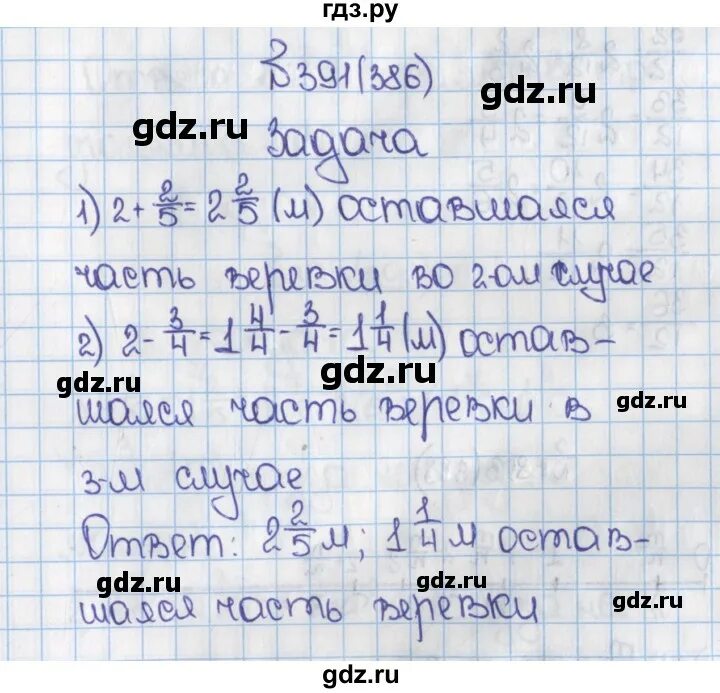 гдз.ру
№391(386)
gdz.ru gdz.ru
Задача
1) 2 + 2/5 = 2 2/5 (м) оставшаяся
часть веревки во 2-ом случае
2) 2 - 3/4 = 1 4/4 - 3/4 = 1 1/4 (м) остав-
gdz.ru gdz.ru
шаяся часть веревки в gdz.ru
3-м случае
Ответ: 2 2/5 м; 1 1/4 м остав-
gdz.ru gdz.ru gdz.ru
шаяся часть веревки
gdz.ru